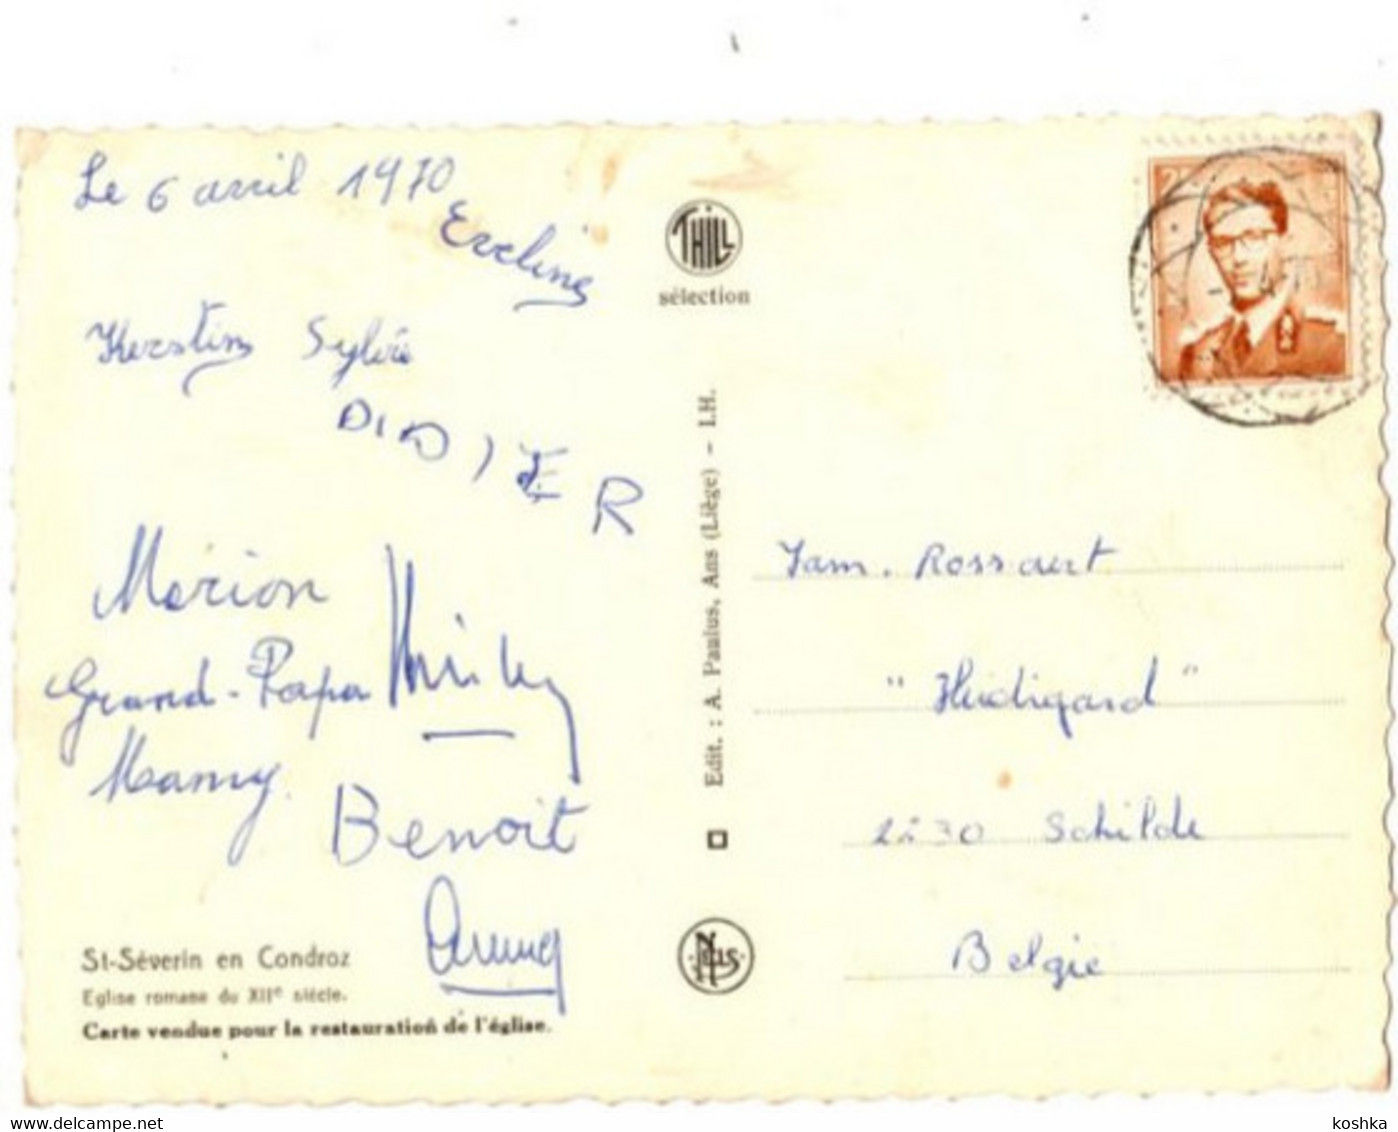 Le 6 avril 1970
Eveline
Kerstin Sylvie
DIDIER
Marion
Grand-Papa
Mamy.
Benoît
St-Séverin en Condroz
Eglise romane du XIIe siècle.
Carte vendue pour la restauration de l'église.
THILL
sélection
Edit. : A. Paulus, Ans (Liège) - I.H.
NELS
2F
Fam. Rossaert
"Hildigard"
2230 Schilde
België
www.delcampe.net
koshka